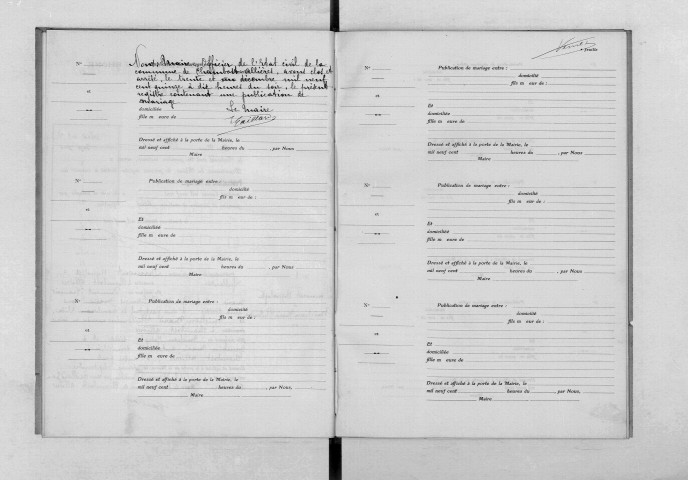 Nous Maire, officier de l'Etat civil de la
commune de avons clos et
arrêté, le trente et un décembre mil neuf
cent à dix heures du soir, le présent
registre contenant une publication de
mariage
domiciliée Le Maire
fille m eure de
Dressé et affiché à la porte de la Mairie, le
mil neuf cent heures du , par Nous
Maire
N°
et
N°
et
Publication de mariage entre :
domicilié
fils m eur de :
Et
domiciliée
fille m eure de
Dressé et affiché à la porte de la Mairie, le
mil neuf cent heures du , par Nous
Maire
N°
et
Publication de mariage entre :
domicilié
fils m eur de :
Et
domiciliée
fille m eure de
Dressé et affiché à la porte de la Mairie, le
mil neuf cent heures du , par Nous,
Maire
Feuille
N°
et
Publication de mariage entre :
domicilié
fils m eur de :
Et
domiciliée
fille m eure de
Dressé et affiché à la porte de la Mairie, le
mil neuf cent heures du , par Nous
Maire
N°
et
Publication de mariage entre :
domicilié
fils m eur de :
Et
domiciliée
fille m eure de
Dressé et affiché à la porte de la Mairie, le
mil neuf cent heures du , par Nous
Maire
N°
et
Publication de mariage entre :
domicilié
fils m eur de :
Et
domiciliée
fille m eure de
Dressé et affiché à la porte de la Mairie, le
mil neuf cent heures du , par Nous
Maire